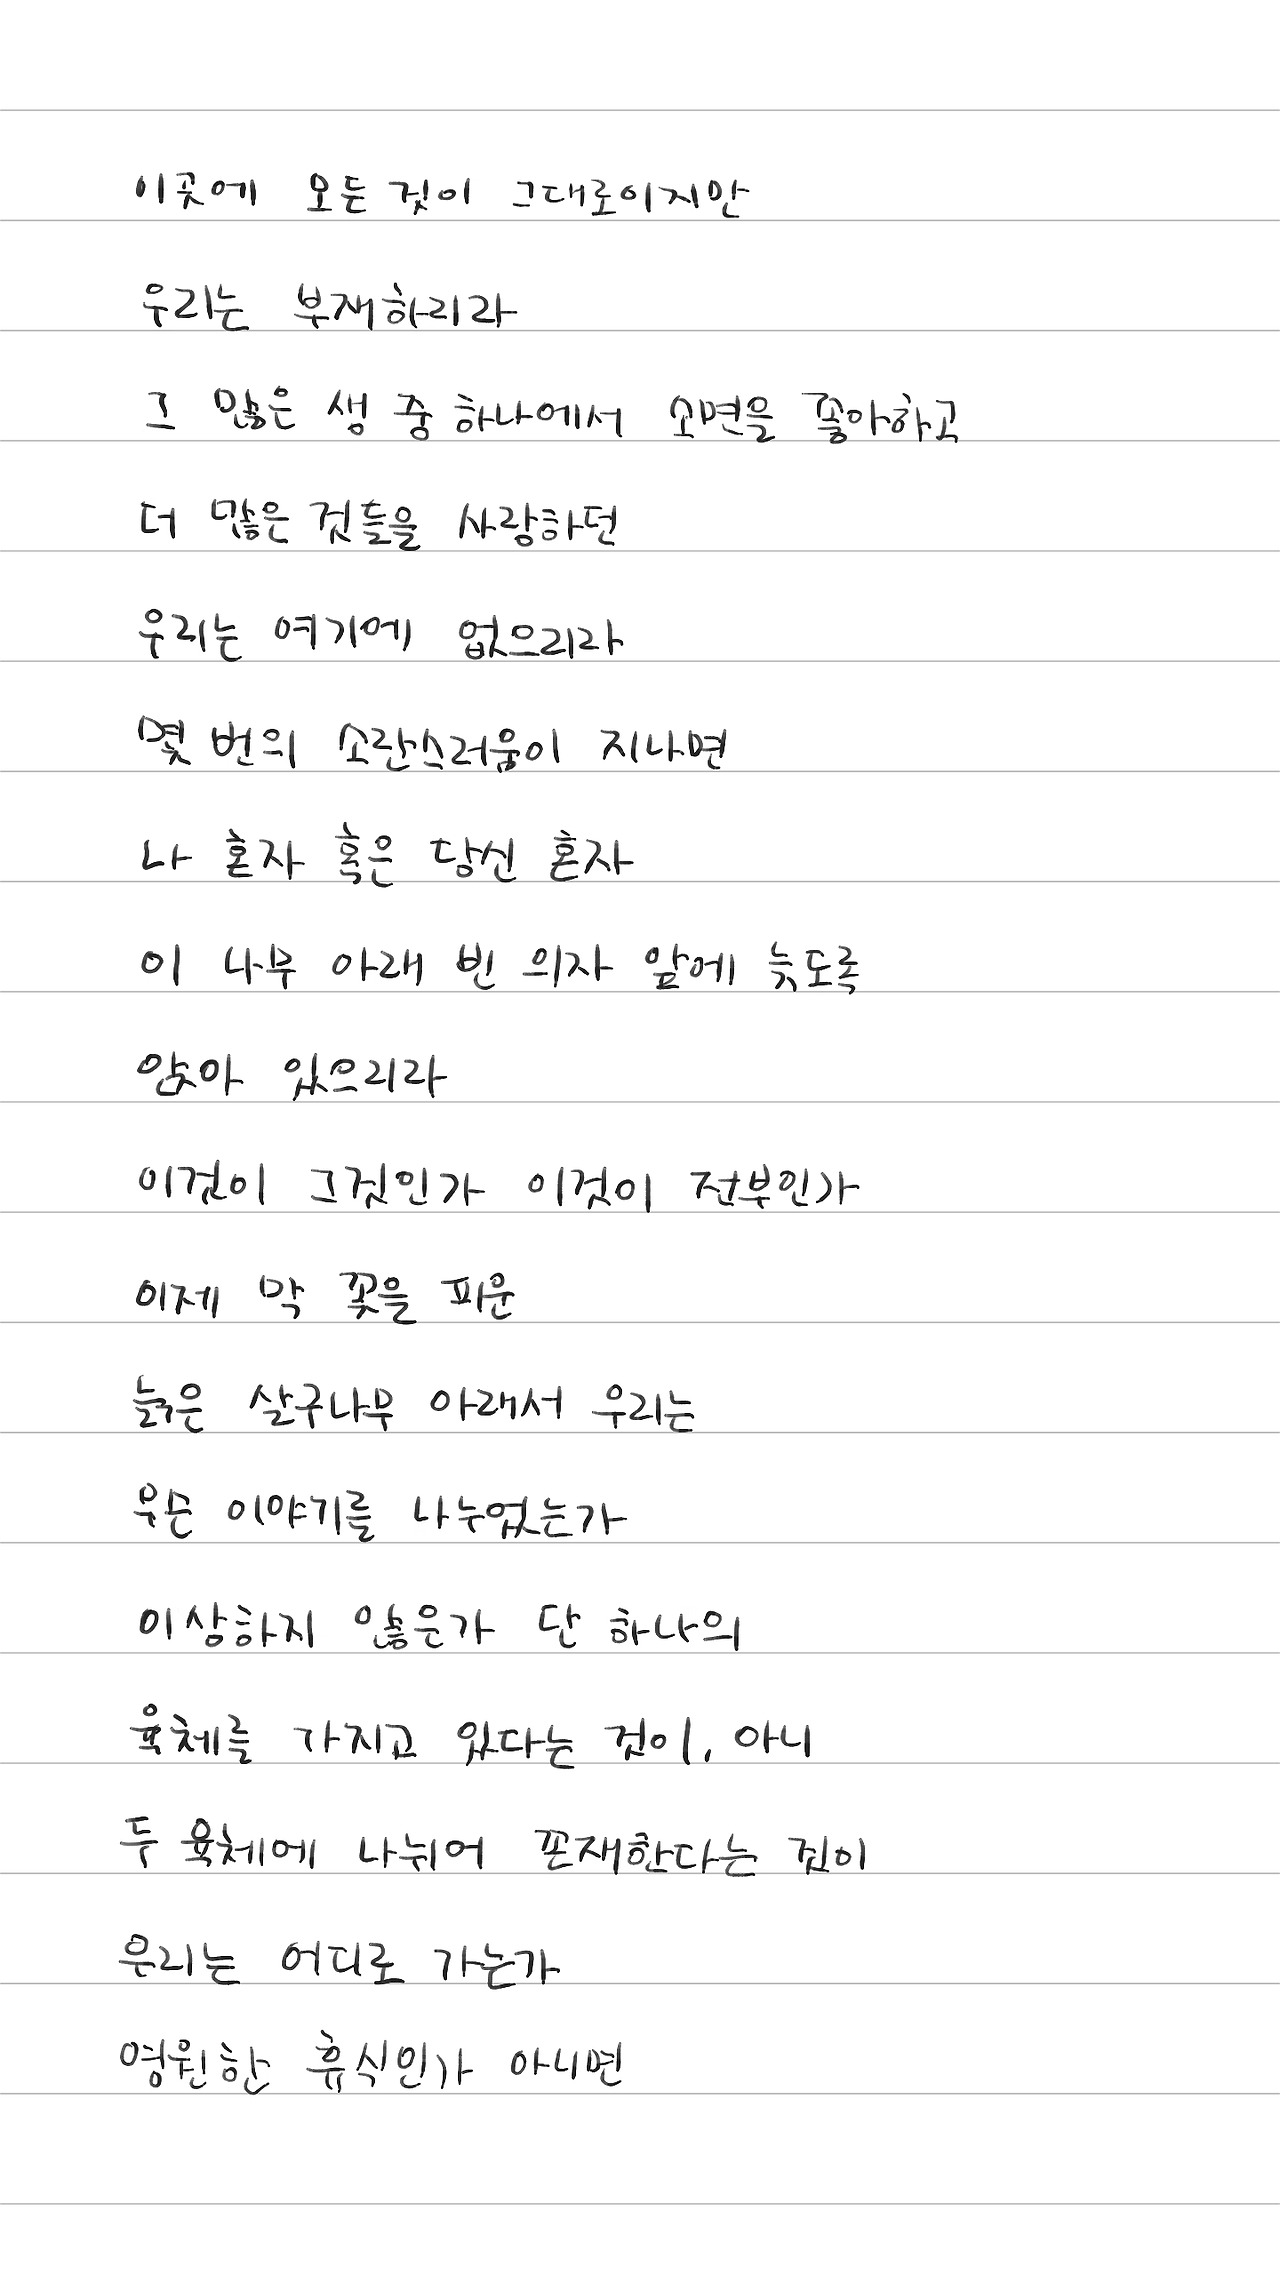 이곳에 모든 것이 그대로이지만
우리는 부재하리라
그 많은 생 중 하나에서 소면을 좋아하고
더 많은 것들을 사랑하던
우리는 여기에 없으리라
몇 번의 소란스러움이 지나면
나 혼자 혹은 당신 혼자
이 나무 아래 빈 의자 앞에 늦도록
앉아 있으리라
이것이 그것인가 이것이 전부인가
이제 막 꽃을 피운
늙은 살구나무 아래서 우리는
무슨 이야기를 나누었는가
이상하지 않은가 단 하나의
육체를 가지고 있다는 것이, 아니
두 육체에 나뉘어 존재한다는 것이
우리는 어디로 가는가
영원한 휴식인가 아니면